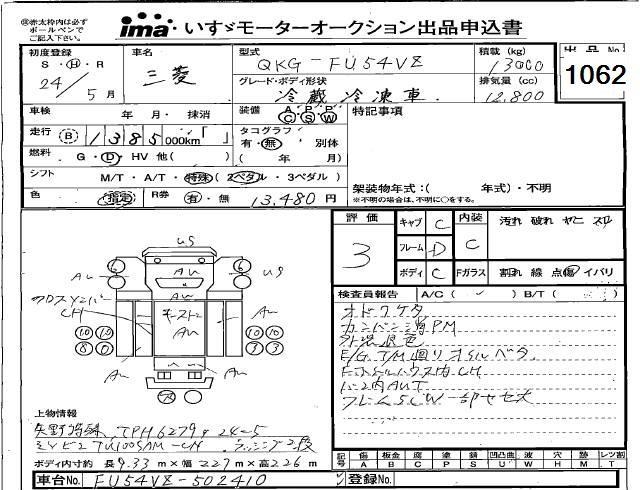 ※赤太枠内は必ず
ボールペンで
ご記入下さい。
ima いすゞモーターオークション出品申込書
初度登録 S・H・R 24/5月
車名 三菱
型式 QKG-FU54VZ
積載(kg) 13000
出品No. 1062
グレード・ボディ形状 冷蔵冷凍車
排気量(cc) 12,800
車検 年 月・抹消
装備 AC PS PW
特記事項
走行 B 1385 000km「 」
タコグラフ 有・無 別体
( 年 月)
燃料 G・D・HV 他( )
シフト M/T・A/T・特殊( 2ペダル・3ペダル)
架装物年式:( 年式)・不明
※不明の場合は、不明に○をする。
色 (指定) R券 有・無 13,480 円
評価 3
キャブ C 内装 C 汚れ 破れ ヤニ スレ
フレーム D
ボディ C Fガラス 割れ 線 点傷 イバリ
検査員報告 A/C( ✓ ) B/T( )
オドワケタ
カンバン消PM
外装退色
E/G T/M廻りオイルベタ
フレームSCW一部セセ大
US
AU US
AU
AU
AU AU
上物情報
矢野特殊 TPH6279 24-5
ミツビシ TU100SAM-CH ラッシング2段
ボディ内寸約 長9.33m×幅227m×高226m
記号 傷A 板金B 腐C 塗P 錆S 凹凸曲U 波W 穴H 跡M レツ割T
車台No. FU54VZ-502410 登録No.